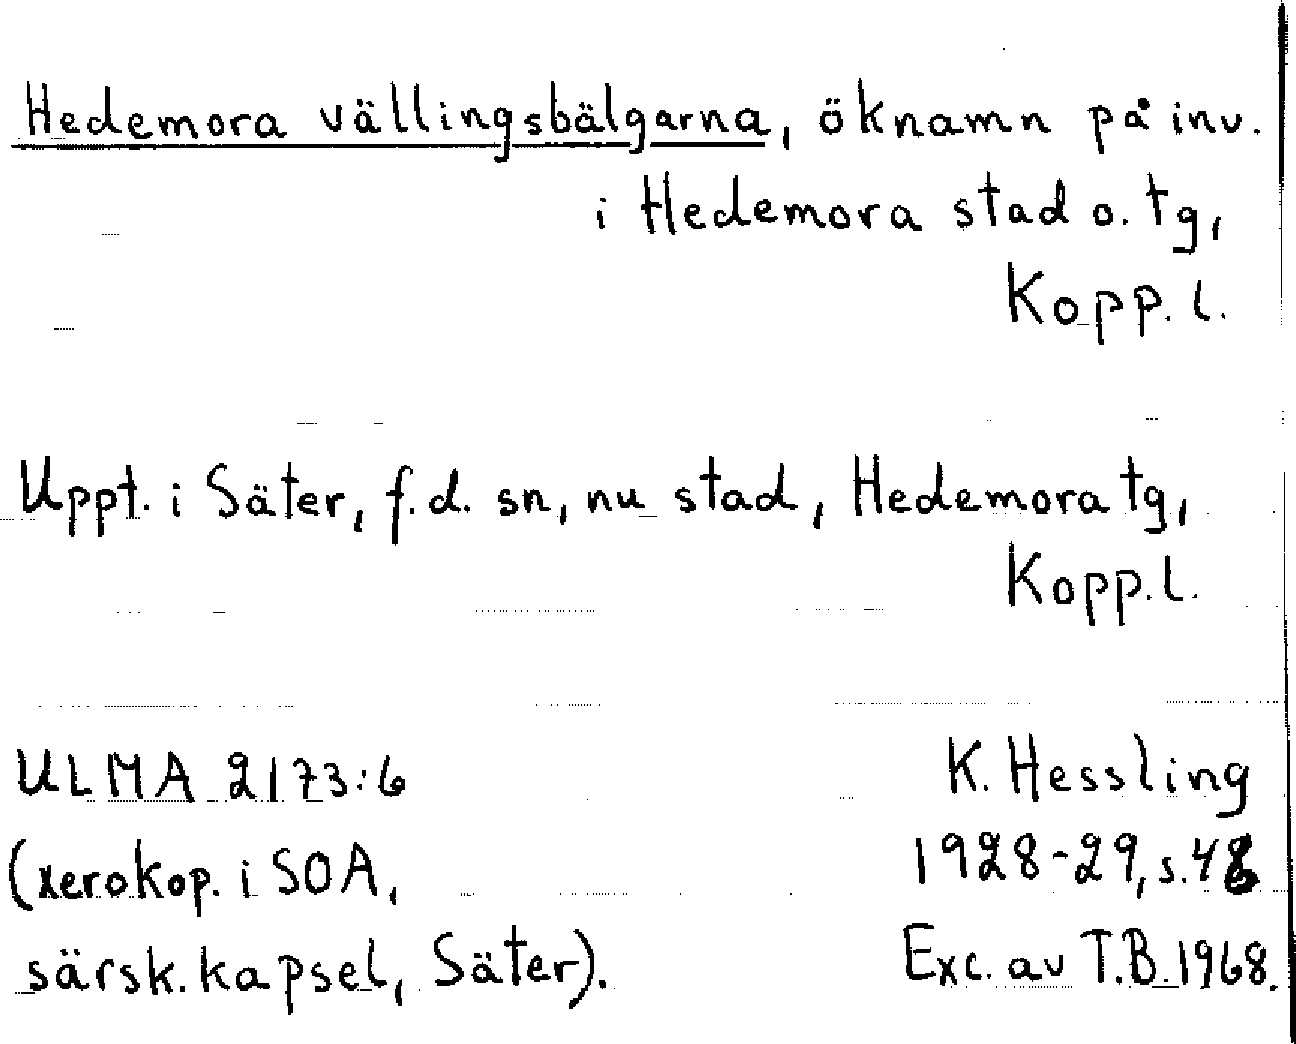 Hedemora vällingsbälgarna, öknamn på inv.
i Hedemora stad o. tg,
Kopp. l.
Uppt. i Säter, f.d. sn, nu stad, Hedemora tg,
Kopp. l.
ULMA 2173:6
(xerokop. i SOA,
särsk. kapsel, Säter).
K. Hessling
1928-29, s.
Exc. av T.B. 1968.